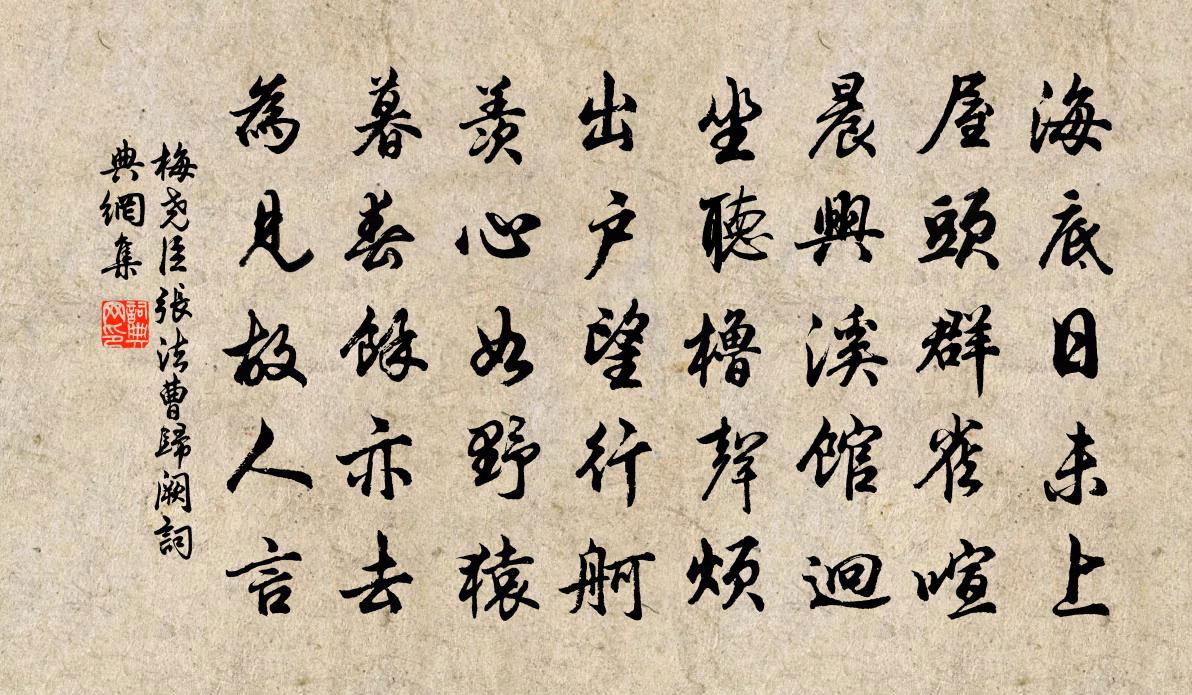 海底日未上
屋頭群雀喧
晨興溪館迥
坐聽櫓聲煩
出户望行舸
羨心如野猿
暮春餘亦去
為見故人言
梅尧臣張法曹歸阙詞
典網集
詞典网印